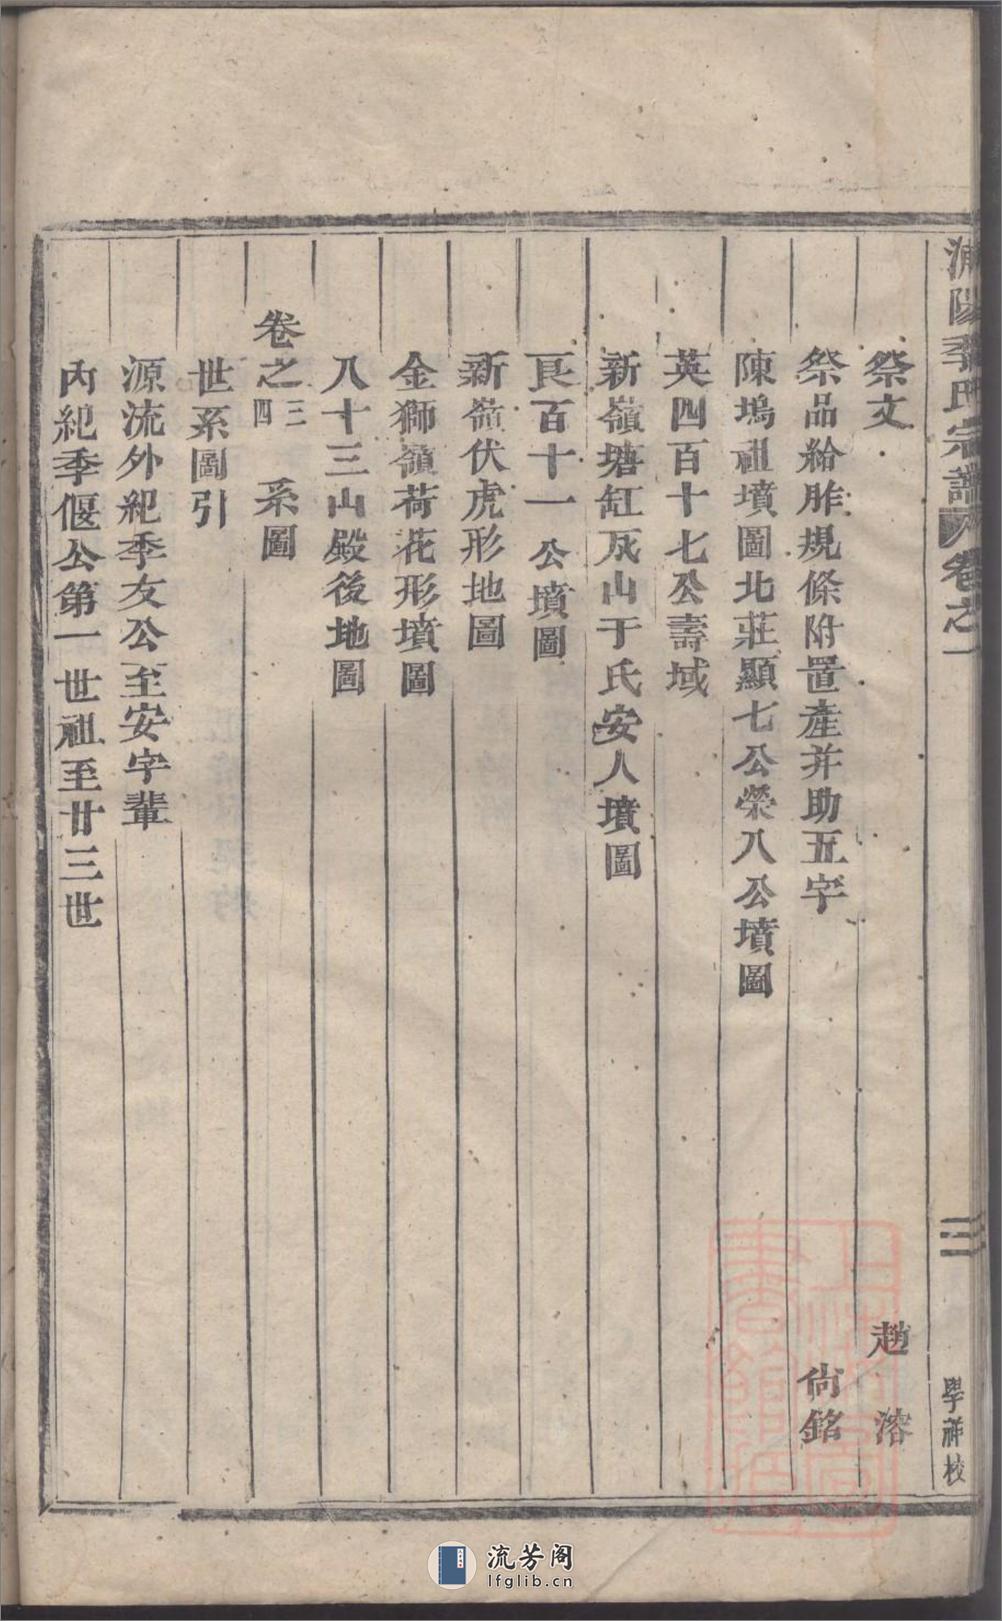 浦陽季氏宗譜 卷之一
三
學祥校
祭文 趙溶
祭品給胙規條附置產并助五字 尙銘
陳塢祖墳圖北莊顯七公榮八公墳圖
英四百十七公壽域
新嶺塘缸瓦山于氏安人墳圖
良百十一公墳圖
新嶺伏虎形地圖
金獅嶺荷花形墳圖
八十三山殿後地圖
卷之三四 系圖
世系圖引
源流外紀季友公至安字輩
內紀季偃公第一世祖至廿三世
上海圖書館藏
流芳阁
lfglib.cn